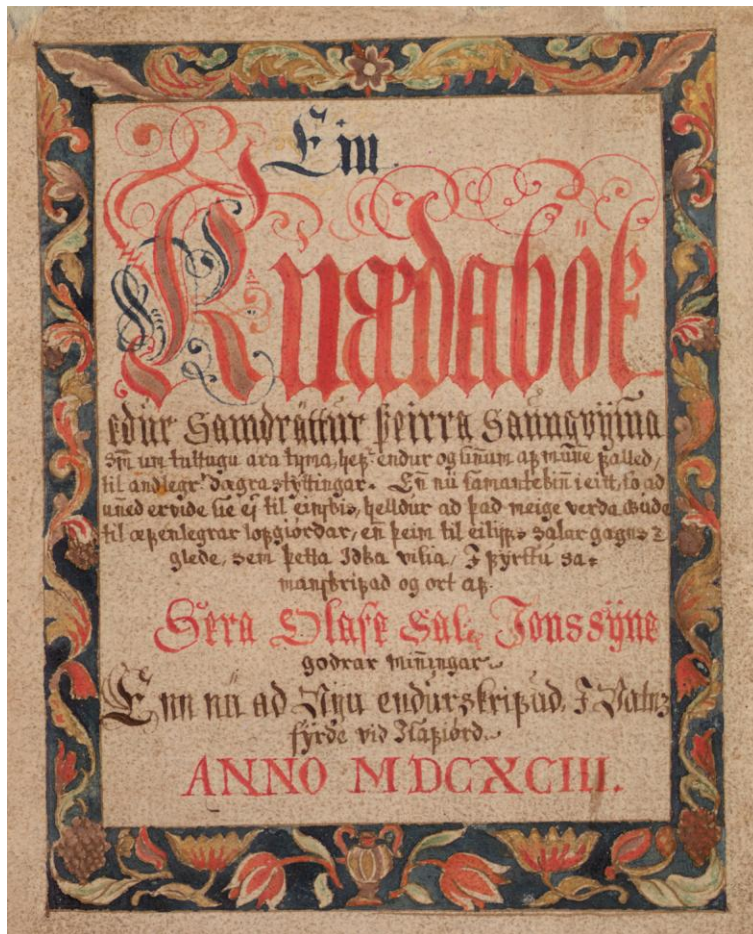 Ein
Kuædabök
edur Samdrättur þeirra Saungvijsna
Sem um tuttugu ara tyma, hefr endur og sinnum af munne falled,
til andlegrar dægrastyttingar. En nu samantekinn i eitt, so ad
unned ervide sie ej til einskis, helldur ad þad meige verda
til æfenlegrar lofgiördar, en þeim til eilijfs salar gagns &
glede, sem þetta Idka vilia, I fyrstu sa-
manskrifad og ort af
Sera Olafe Sal. Jonssÿne
godrar minningar
Enn nu ad Nyu endurskrifud, I Vatnz
fyrde vid Isafiord
ANNO MDCXCIII.